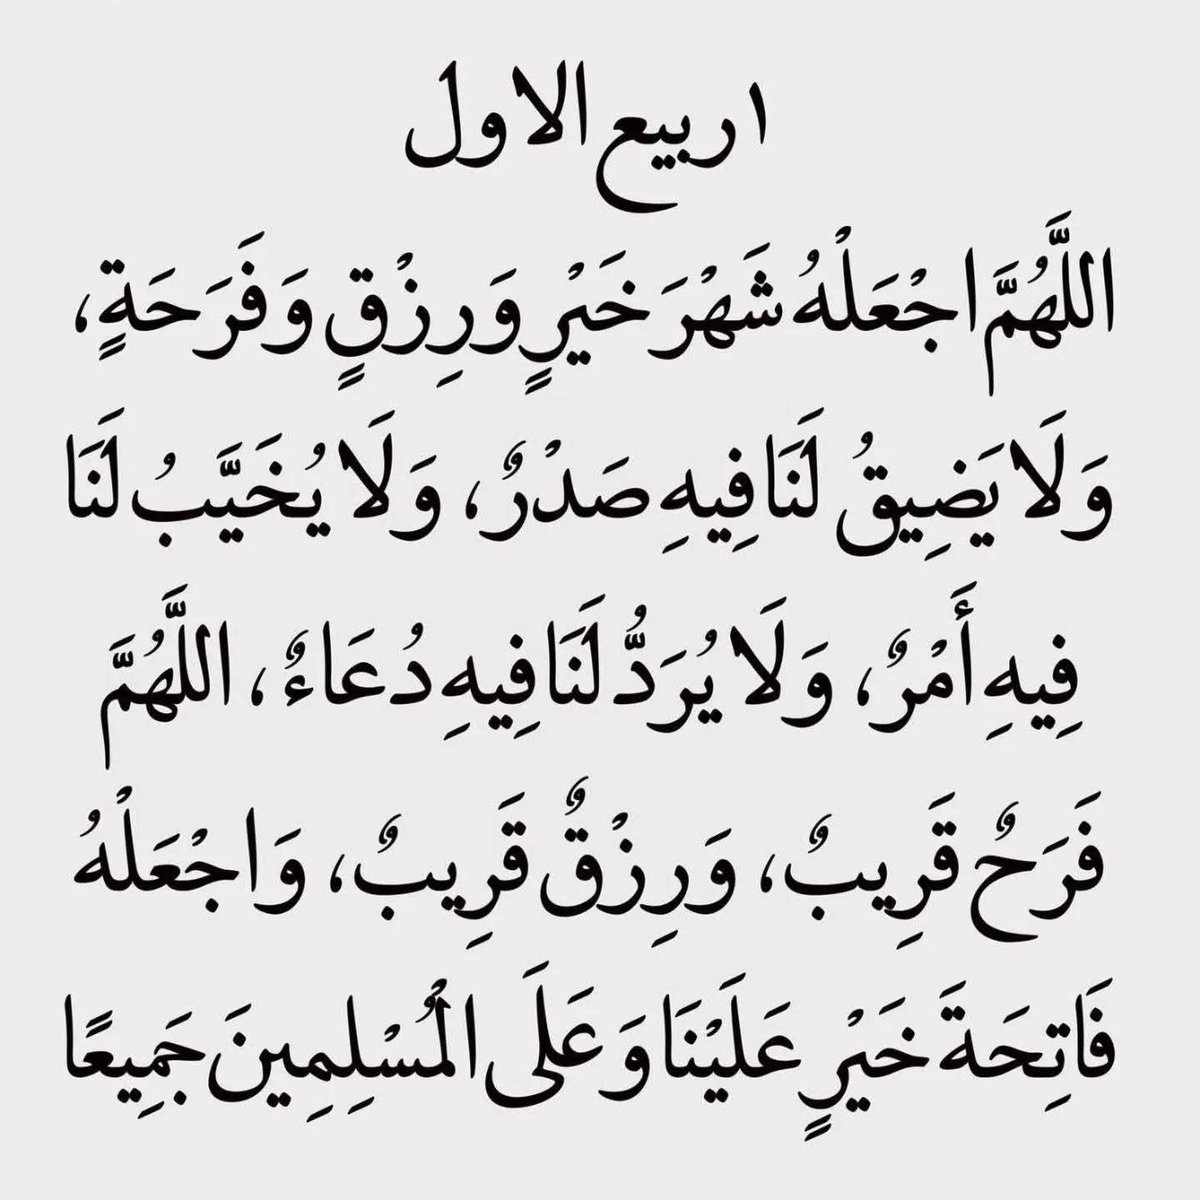 ١ ربيع الاول
اللَّهُمَّ اجْعَلْهُ شَهْرَ خَيْرٍ وَرِزْقٍ وَفَرَحَةٍ،
وَلَا يَضِيقُ لَنَا فِيهِ صَدْرٌ، وَلَا يُخَيَّبُ لَنَا
فِيهِ أَمْرٌ، وَلَا يُرَدُّ لَنَا فِيهِ دُعَاءٌ، اللَّهُمَّ
فَرَحٌ قَرِيبٌ، وَرِزْقٌ قَرِيبٌ، وَاجْعَلْهُ
فَاتِحَةَ خَيْرٍ عَلَيْنَا وَعَلَى الْمُسْلِمِينَ جَمِيعًا